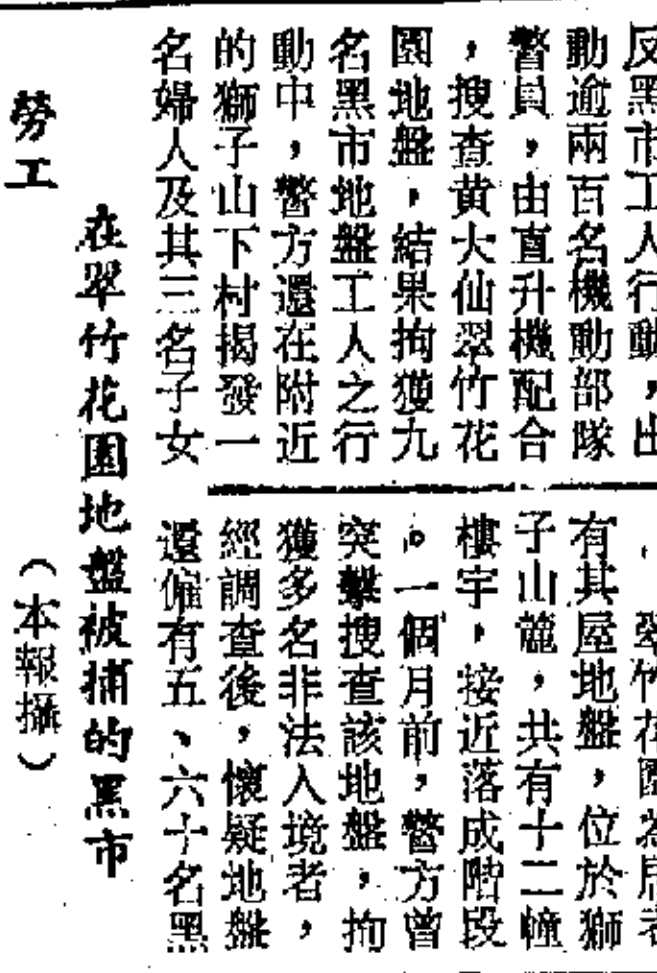 反黑市工人行動，出
動逾兩百名機動部隊
警員，由直升機配合
，搜查黄大仙翠竹花
園地盤，結果拘獲九
名黑市地盤工人之行
動中，警方還在附近
的獅子山下村揭發一
名婦人及其三名子女
翠竹花園為居者
有其屋地盤，位於獅
子山麓，共有十二幢
樓宇，接近落成階段
。一個月前，警方曾
突擊搜查該地盤，拘
獲多名非法入境者，
經調查後，懷疑地盤
還僱有五、六十名黑
在翠竹花園地盤被捕的黑市
勞工
（本報攝）